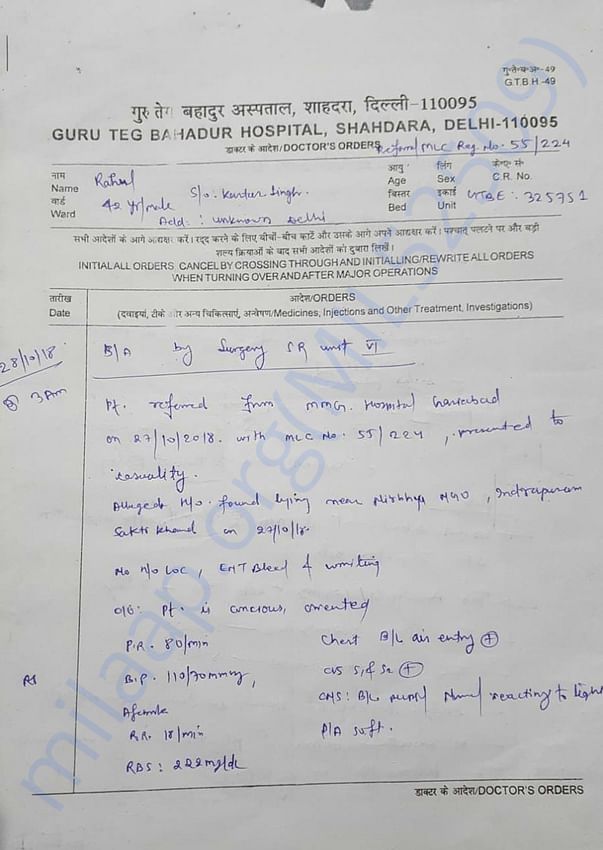 गु०ते०ब०अ०-49
G.T.B.H.-49
गुरु तेग बहादुर अस्पताल, शाहदरा, दिल्ली-110095
GURU TEG BAHADUR HOSPITAL, SHAHDARA, DELHI-110095
डाक्टर के आदेश/DOCTOR'S ORDERS Referral/MLC Reg. No. 55/224
नाम आयु लिंग के०ए० सं०
Name Rahul S/o: Kartar Singh. Age Sex C.R. No.
वार्ड बिस्तर इकाई
Ward 42 yr/male Add: unknown Delhi Bed Unit 325751
सभी आदेशों के आगे आद्यक्षर करें। रद्द करने के लिए बीचों-बीच काटें और उसके आगे अपने आद्यक्षर करें। पश्चात् पलटने पर और बड़ी
शल्य क्रियाओं के बाद सभी आदेशों को दुबारा लिखें।
INITIAL ALL ORDERS CANCEL BY CROSSING THROUGH AND INITIALLING/REWRITE ALL ORDERS
WHEN TURNING OVER AND AFTER MAJOR OPERATIONS
तारीख आदेश/ORDERS
Date (दवाइयां, टीके और अन्य चिकित्साएं, अन्वेषण/Medicines, Injections and Other Treatment, Investigations)
28/10/18 B/A by Surgery SR unit VI
@ 3AM
Pt. referred from MMG. Hospital
on 27/10/2018. with MLC No. 55/224, presented to
casuality.
Alleged H/o. found lying near NGO, Indrapuram
Sakti Khand on 27/10/18.
No H/o LOC, ENT Bleed & vomiting
O/E: Pt. is concious, oriented
P.R. 80/min Chest B/L air entry ⊕
B.P. 110/70mmHg, CVS S1 & S2 ⊕
Afebrile CNS: B/L pupil reacting to light
R.R. 18/min P/A soft.
RBS: 222mg/dl
डाक्टर के आदेश/DOCTOR'S ORDERS
milaap.org(MILS25309)